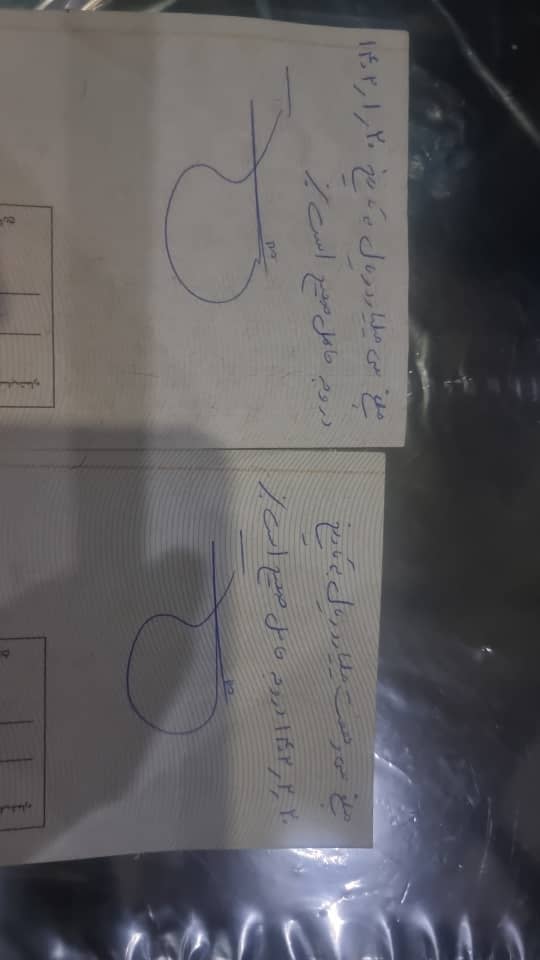 مبلغ سی میلیارد ریال به تاریخ ۱۴۰۲٫۱٫۲۰
در وجه حامل صحیح است
مبلغ سی و هفت میلیارد ریال به تاریخ
۱۴۰۲٫۲٫۲۰ در وجه حامل صحیح است